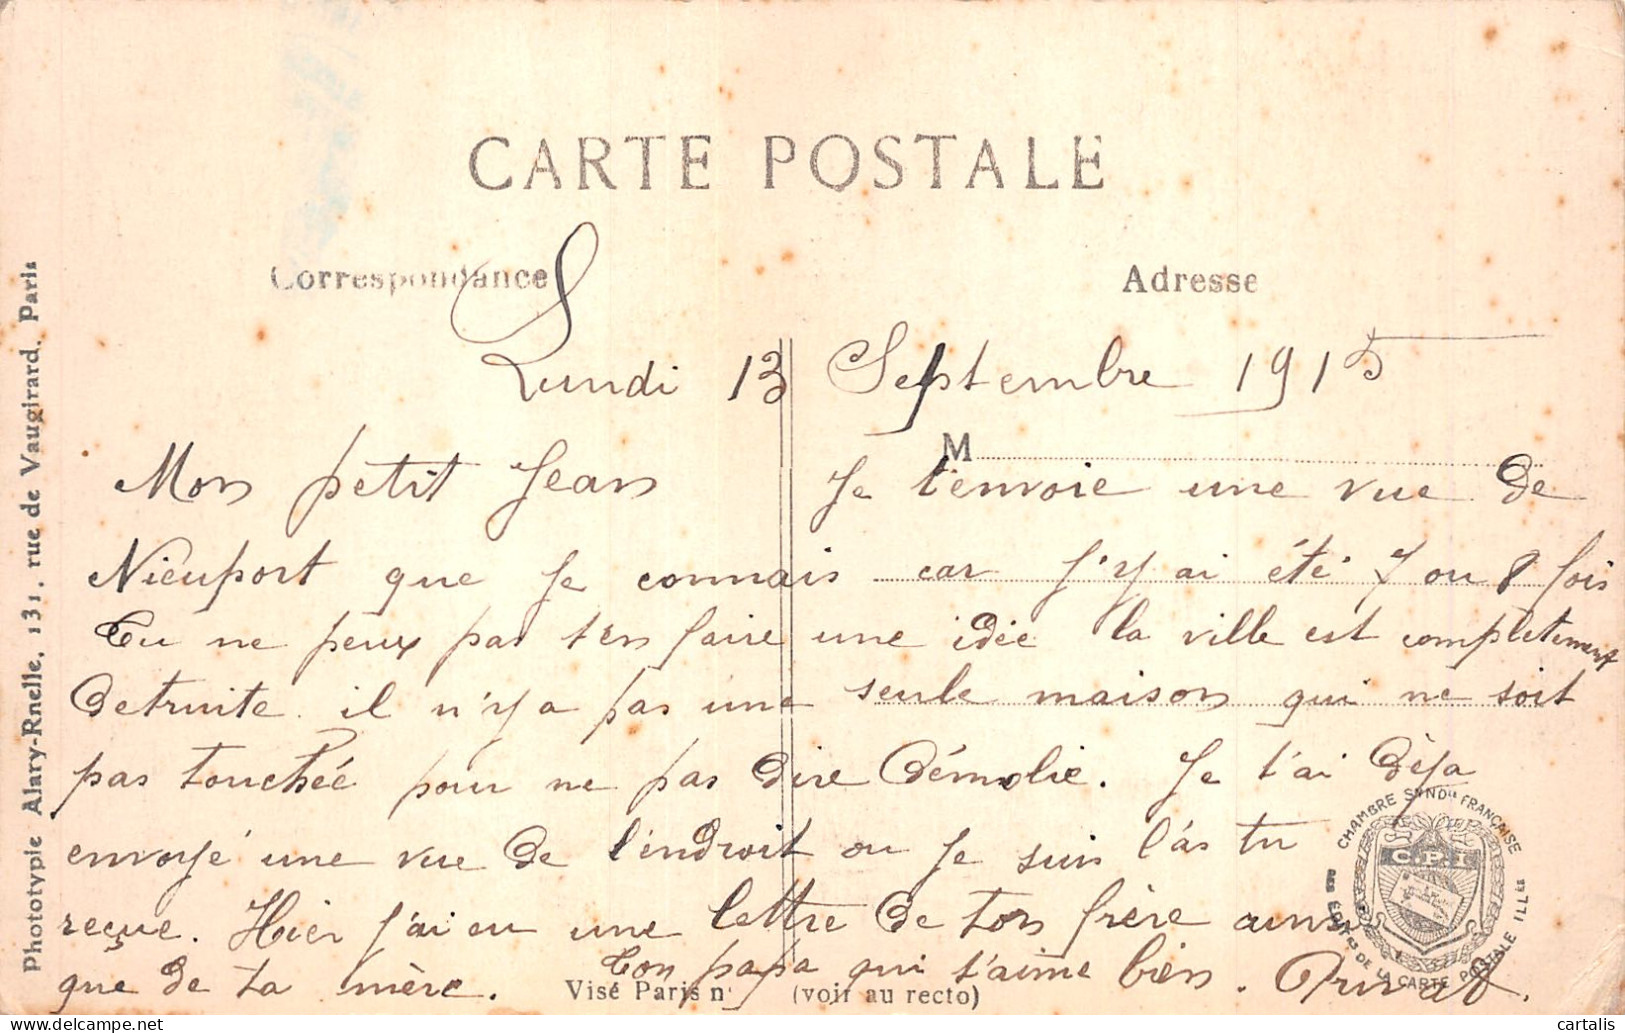 CARTE POSTALE
Correspondance
Adresse
Lundi 13 Septembre 1915
M
Mon petit Jean Je t'envoie une vue de
Nieuport que je connais car j'y ai été 7 ou 8 fois
Tu ne peux pas t'en faire une idée la ville est completement
detruite. il n'y a pas une seule maison qui ne soit
pas touchée pour ne pas dire démolie. Je t'ai dèja
envoyé une vue de l'endroit ou je suis l'ás tu
reçue. Hier j'ai eu une lettre de ton frère ainsi
que de ta mère. Ton papa qui t'aime bien. Privat.
Visé Paris n° (voir au recto)
Phototypie Alary-Ruelle, 131, rue de Vaugirard, Paris
CHAMBRE SYNDle FRANÇAISE
C.P.I
DES EDITrs DE LA CARTE POSTALE ILLée
cartalis
delcampe.net